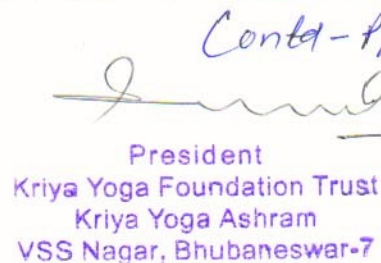 Contd-P
President
Kriya Yoga Foundation Trust
Kriya Yoga Ashram
VSS Nagar, Bhubaneswar-7